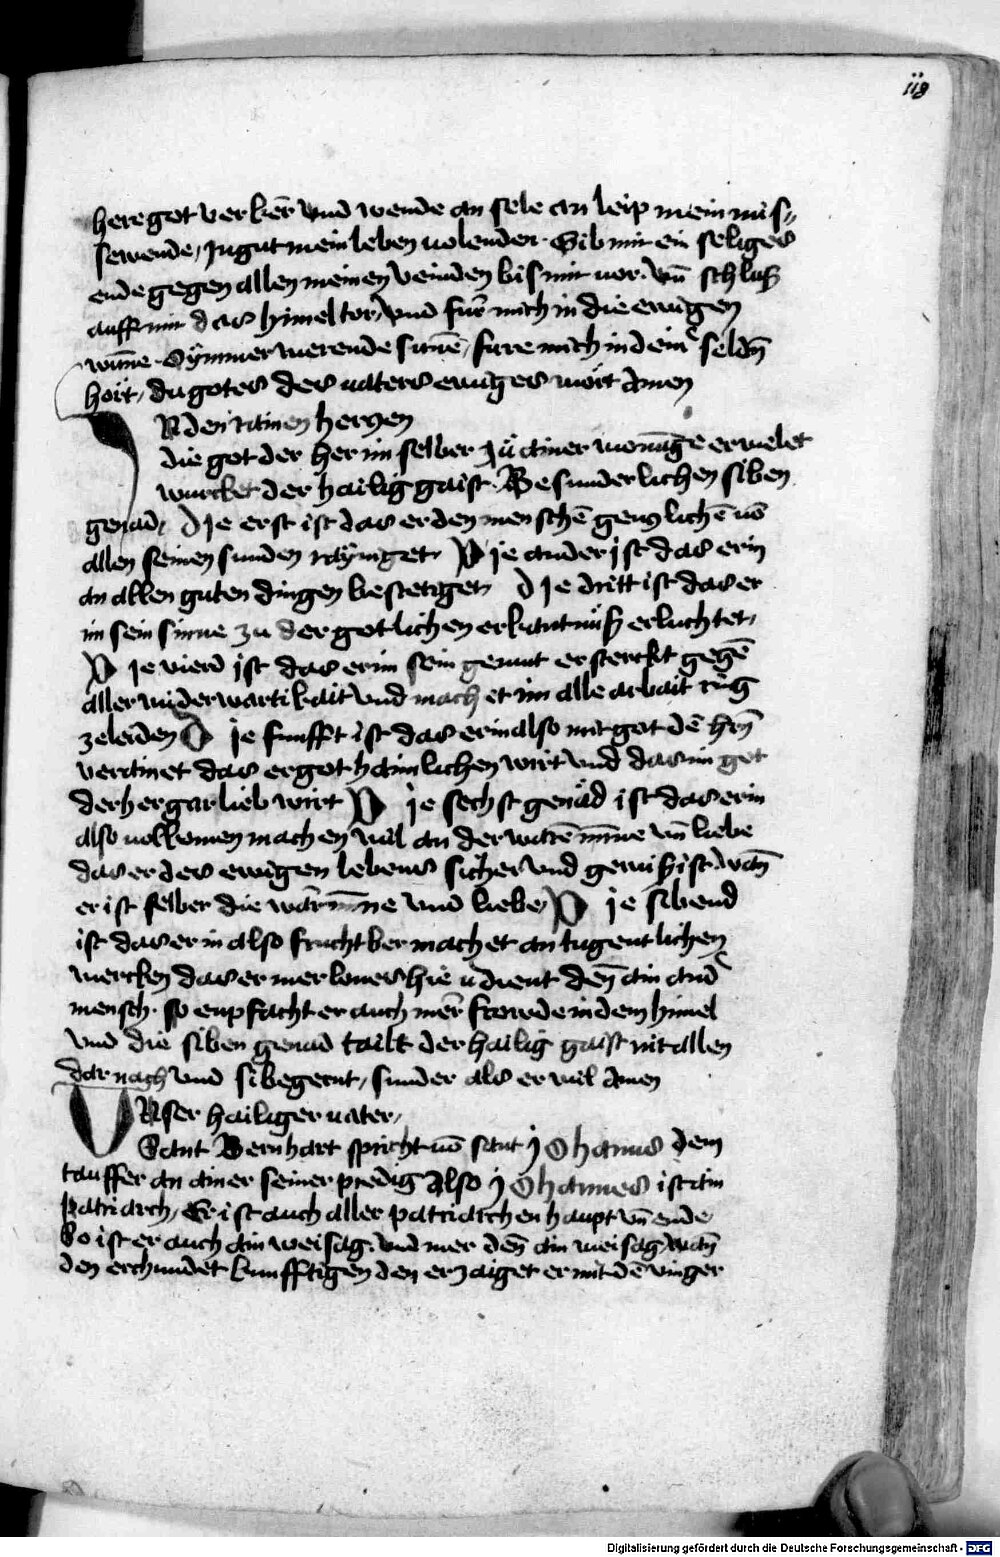 118
here got ver ker̄ vnd wende an sele an leip mein mis⸗
sewende, zu gut mein leben volender. Gib mir ein seliges
ende gegen allen meinen veinden bis mir vor. vn̄ schluß
auff mir das himel tor, vnd für mich in die ewigen
wūne. Symmer werende sunē, füre mich in dein seldn̄
hort, du gotes des vaters ewiges wort Amen
N den rainen herczen
die got der her im selber zu ainer wonūge erwelet
wurcket der hailig gaist. Besunderlichen siben
genad, Die erst ist das er den menschē genczlichē vō
allen seinen sunden rayniget, Die ander ist das er in
an allen guten dingen bestetiget Die dritt ist das er
im sein sinne zu der gotlichen erkantnuß erluchtet,
Die vierd ist das er im sein gemut ersterckt gegē
aller widerwartikait vnd machet im alle arbait ring
zeleiden Die funfft ist das er in also mit got dē hrn̄
verainet das er got haimlichen wirt vnd das im got
der her gar lieb wirt Die sechst genad ist das er in
also volkomen machen wil an der warē mīne vn̄ liebe
das er des ewigen lebens sicher vnd gewiß ist. wan̄
er ist selber die war minne vnd liebe, Die sibend
ist das er in also fruchtber machet an tugentlichen
wercken das er mer lones hie v̄dient den̄ ain and̄
mensch. so enpfacht er auch mer frowde in dem himel
vnd die siben genad tailt der hailig gaist mit allen
dar nach vnd si begernt, sunder als er wil Amen
VNser hailiger vater,
Sant Bernhart spricht vō sant Johannes dem
tauffer an ainer seiner predig Also Johannes ist ain
patriarch, Er ist auch aller patriarchen haupt vn̄ ende
So ist er auch ain weisag. vnd mer den̄ ain weisag. wan̄
den er chundet kunfftigen den erzaiget er mit dē vinger
Digitalisierung gefördert durch die Deutsche Forschungsgemeinschaft - DFG